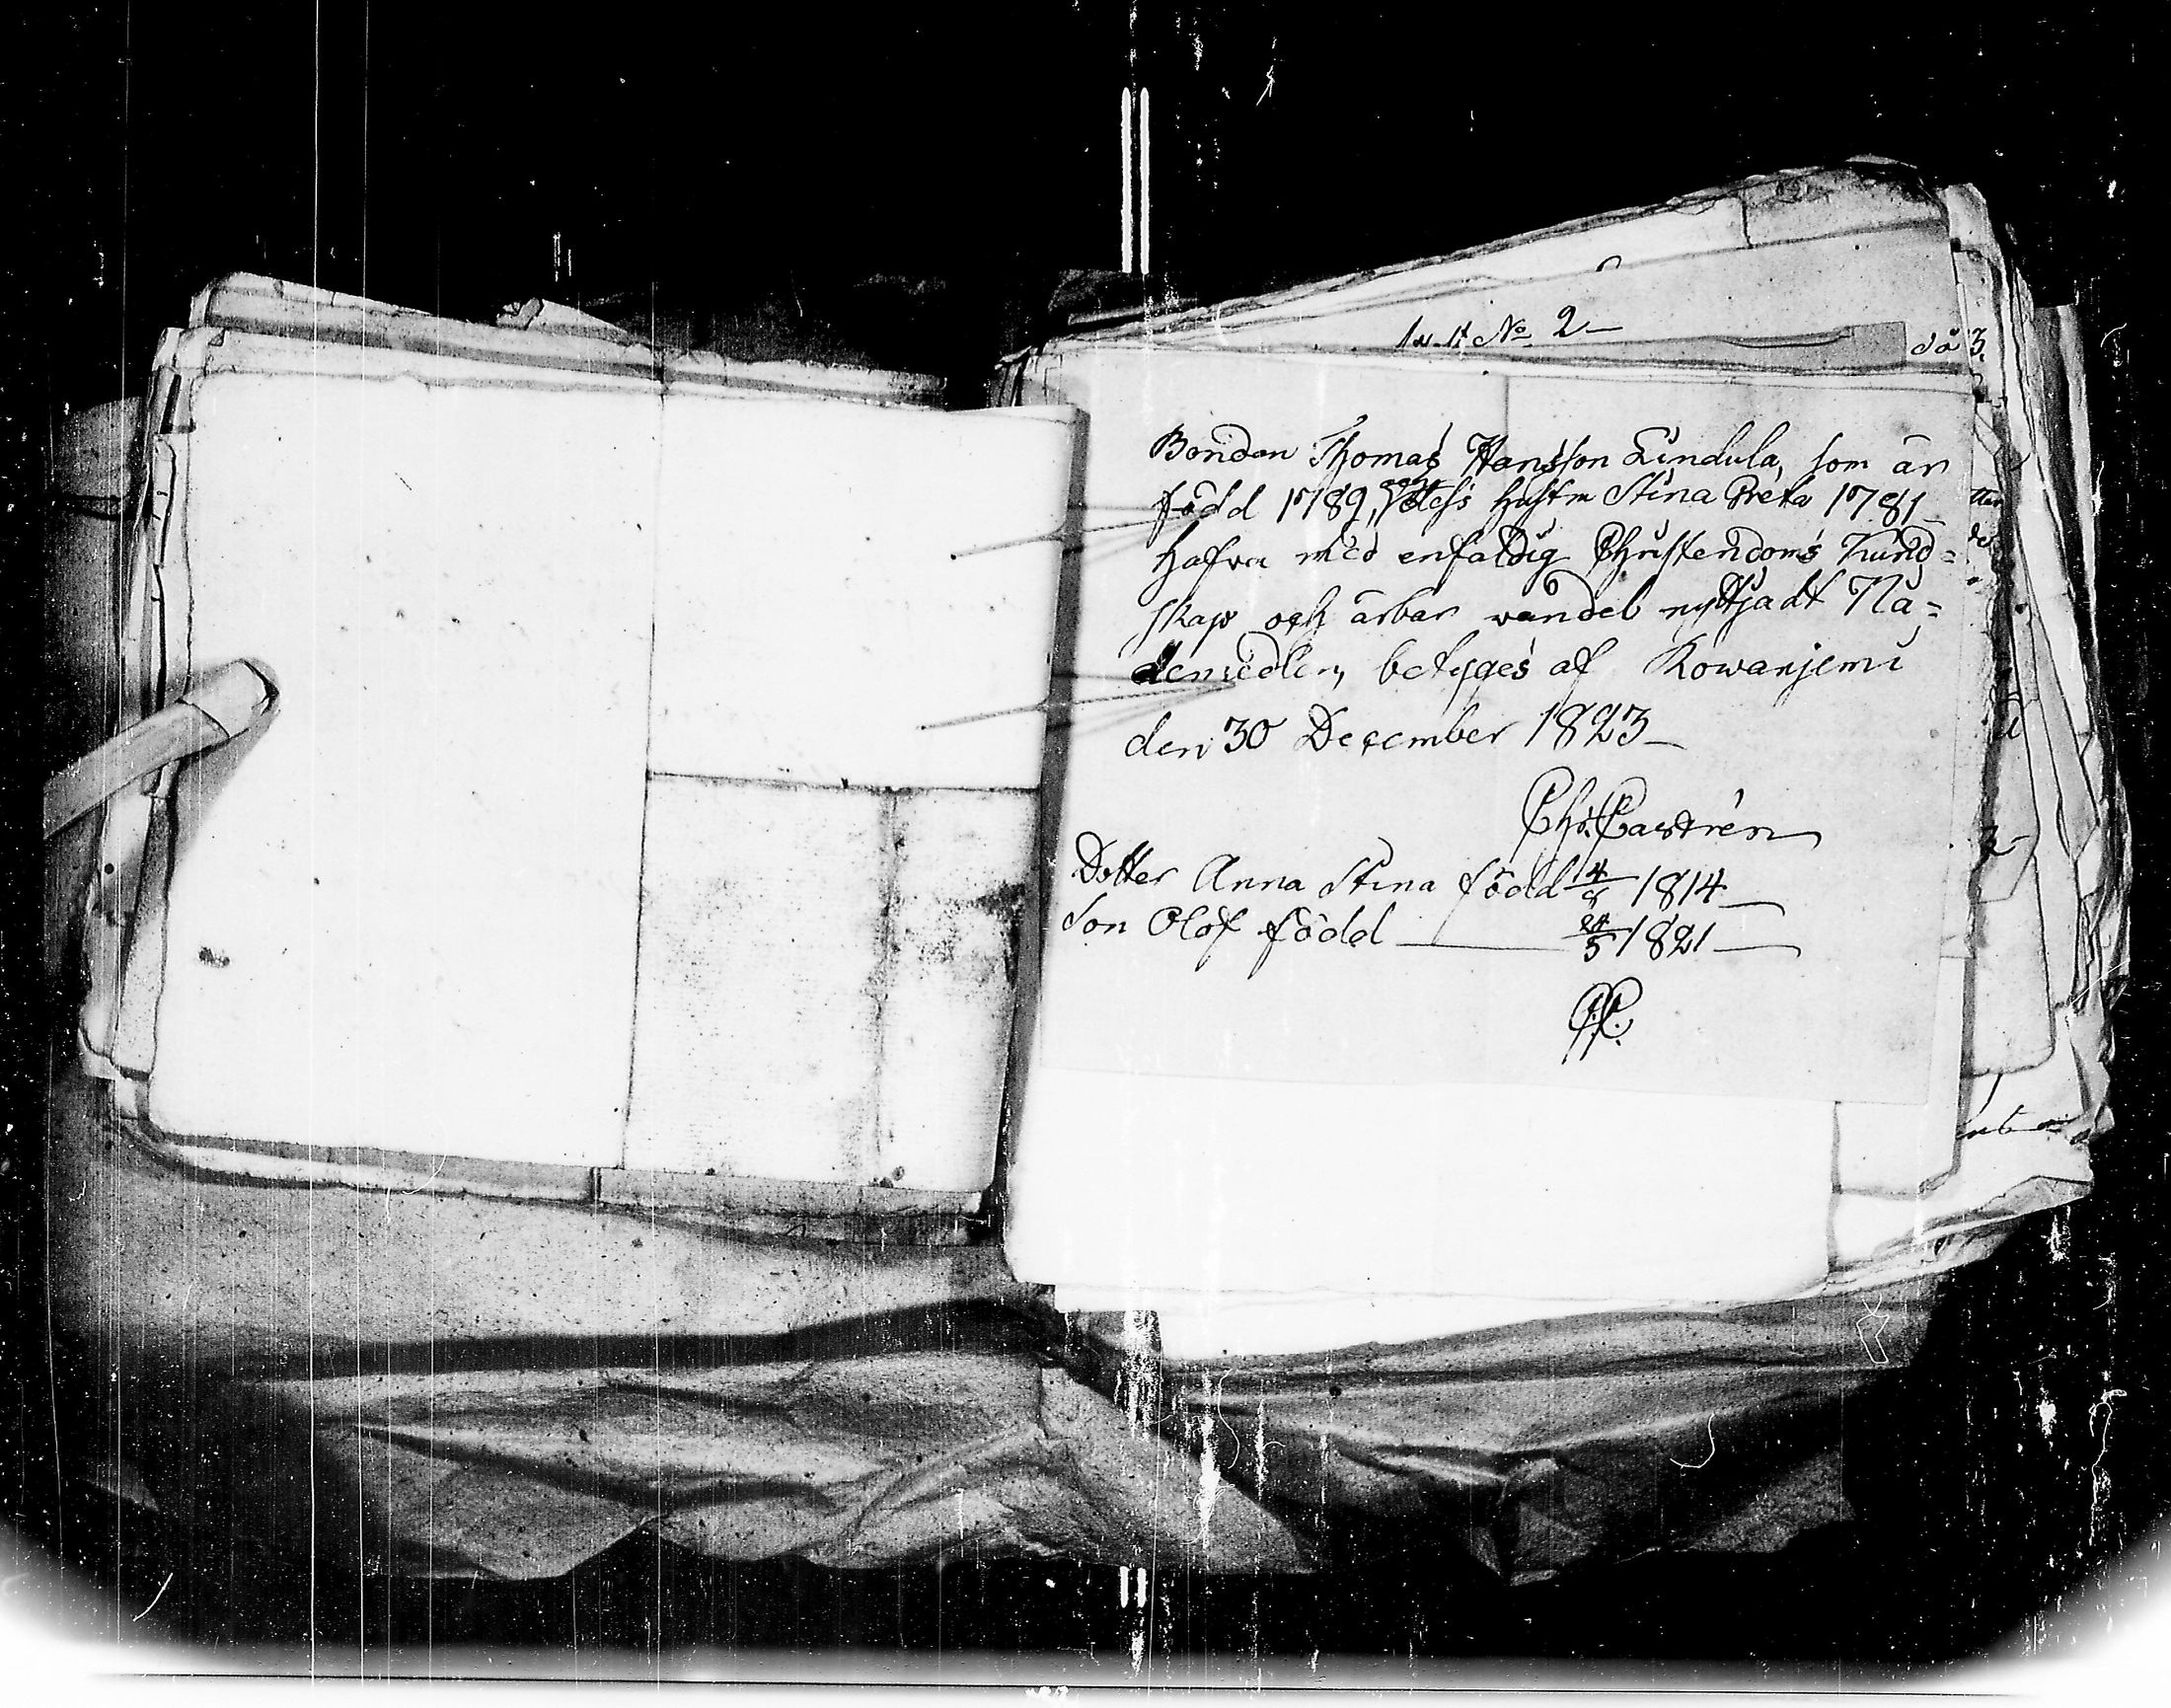 No 2
Bonden Thomas Hansson Lindula, som är
född 1789, och dess hustru Stina Greta 1781
hafva med enfaldig Christendoms Kund=
skap och ärbar vandel nyttjadt Nå=
demedlen, betyges af Rowanjemi
den 30 December 1823
Chr. Castrén
Dotter Anna Stina född 14/8 1814
Son Olof född 24/5 1821